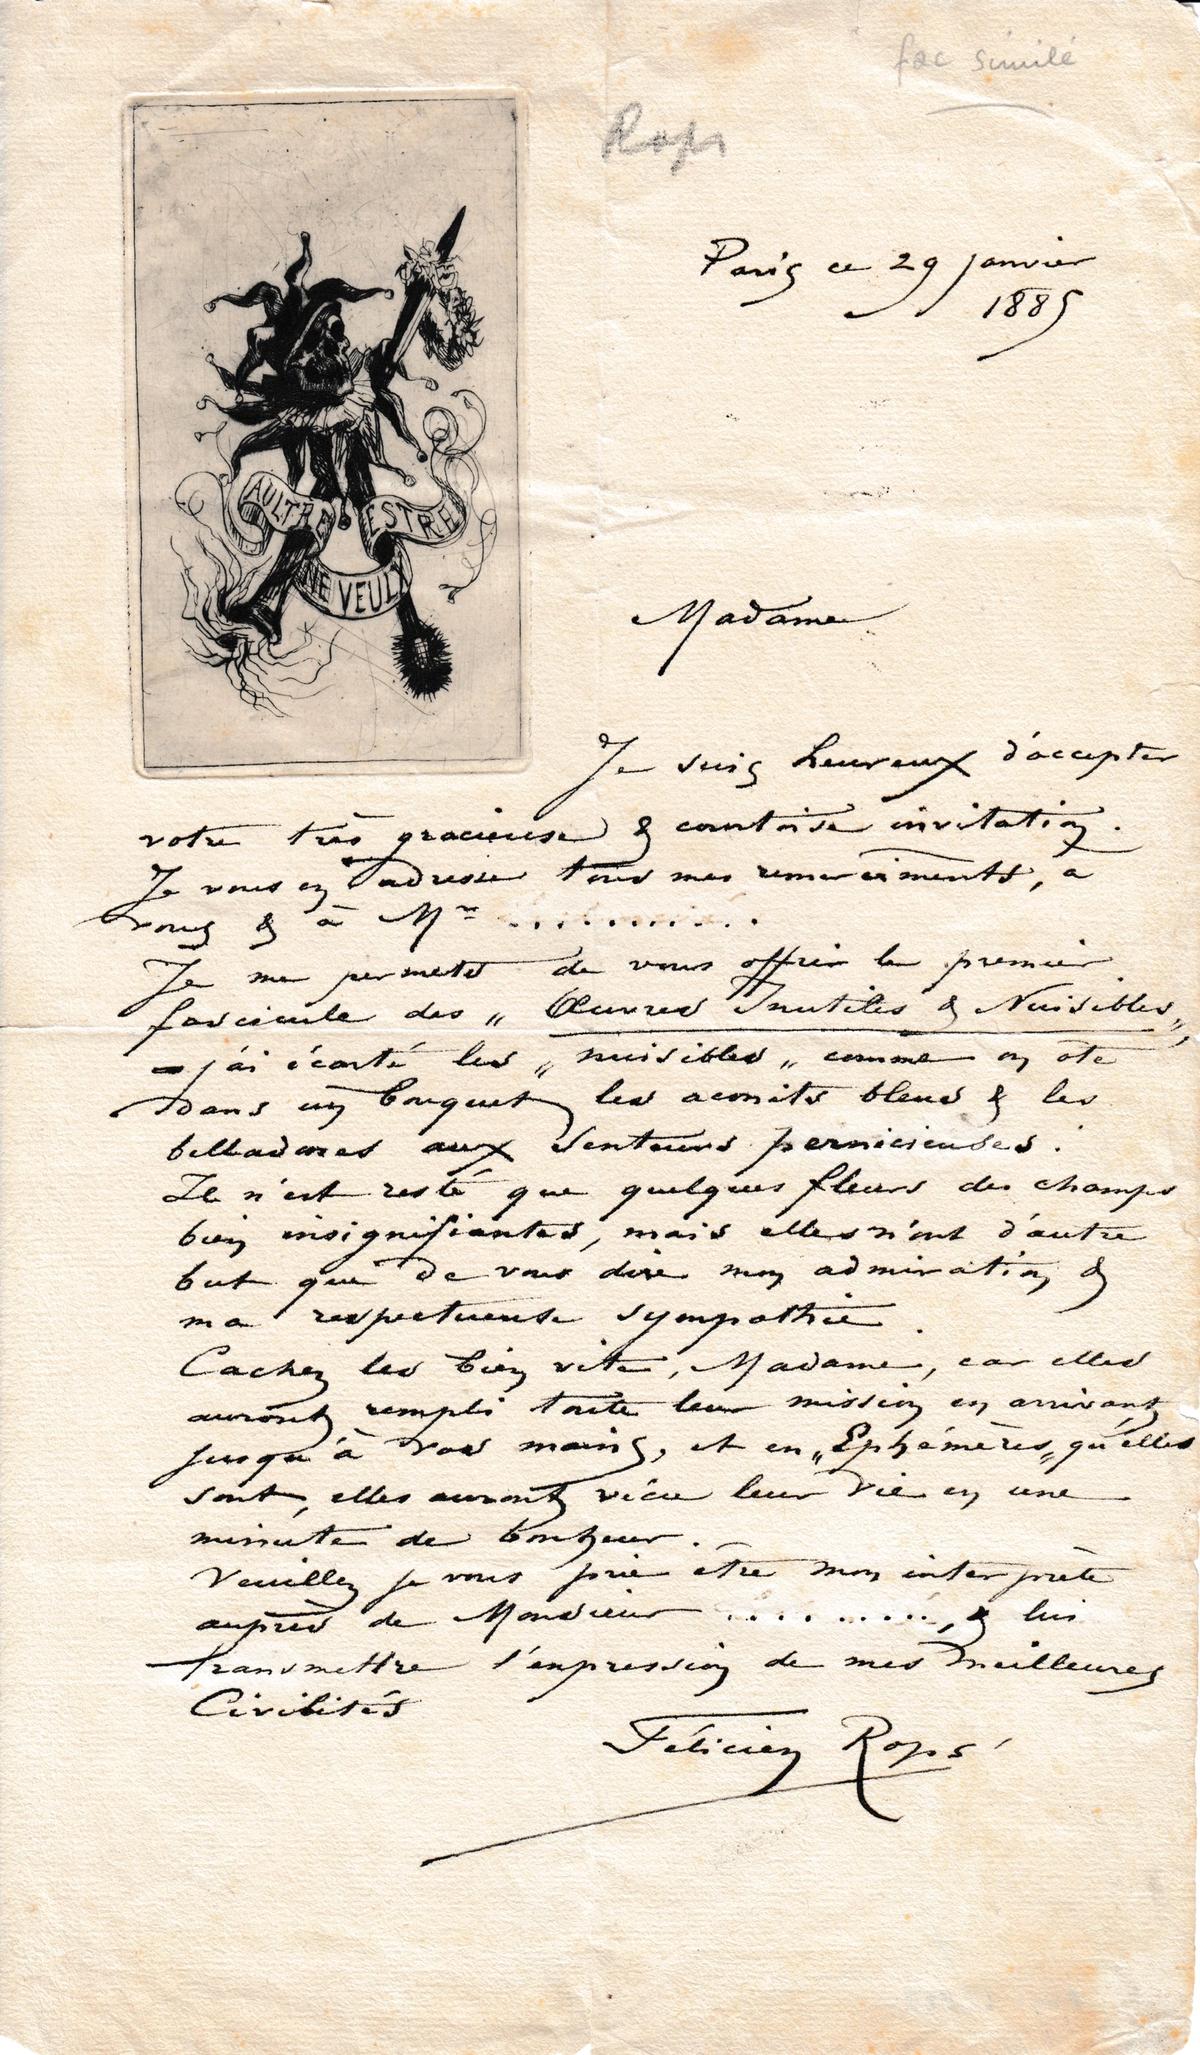 fac similé
Rops
Paris ce 29 janvier
1885
AULTRE NE VEULX ESTRE
Madame
Je suis heureux d'accepter
votre très gracieuse & courtoise invitation.
Je vous en adresse tous mes remerciments, à
vous & à Mr ...........
Je me permets de vous offrir le premier
fascicule des „ Œuvres Inutiles & Nuisibles „
- j'ai écarté les „ nuisibles „ comme on ote
dans un bouquet les aconits bleus & les
belladones aux senteurs pernicieuses.
Il n'est resté que quelques fleurs des champs
bien insignifiantes, mais elles n'ont d'autre
but que de vous dire mon admiration &
ma respectueuse sympathie.
Cachez les bien vite, Madame, car elles
auront rempli toute leur mission en arrivant
jusqu'à vos mains, et en „Ephémères„ qu'elles
sont, elles auront vécu leur vie en une
minute de bonheur.
Veuillez je vous prie être mon interprète
auprès de Monsieur .........., & lui
transmettre l'expression de mes meilleures
Civilités
Félicien Rops